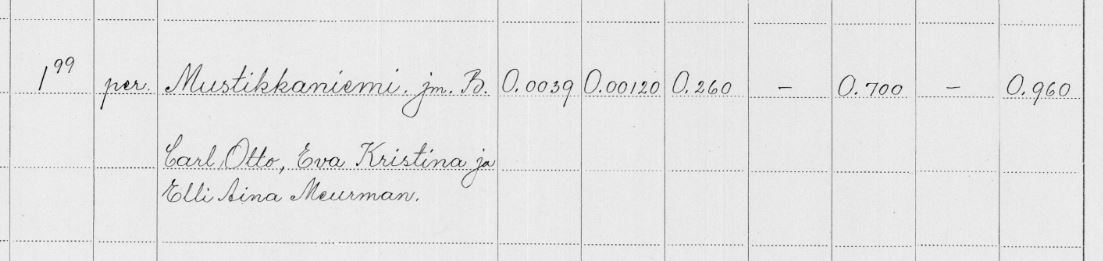 1⁹⁹ per. Mustikkaniemi. jm. B. 0.0039 0.00120 0.260 – 0.700 – 0.960
Carl Otto, Eva Kristina ja
Elli Aina Meurman.